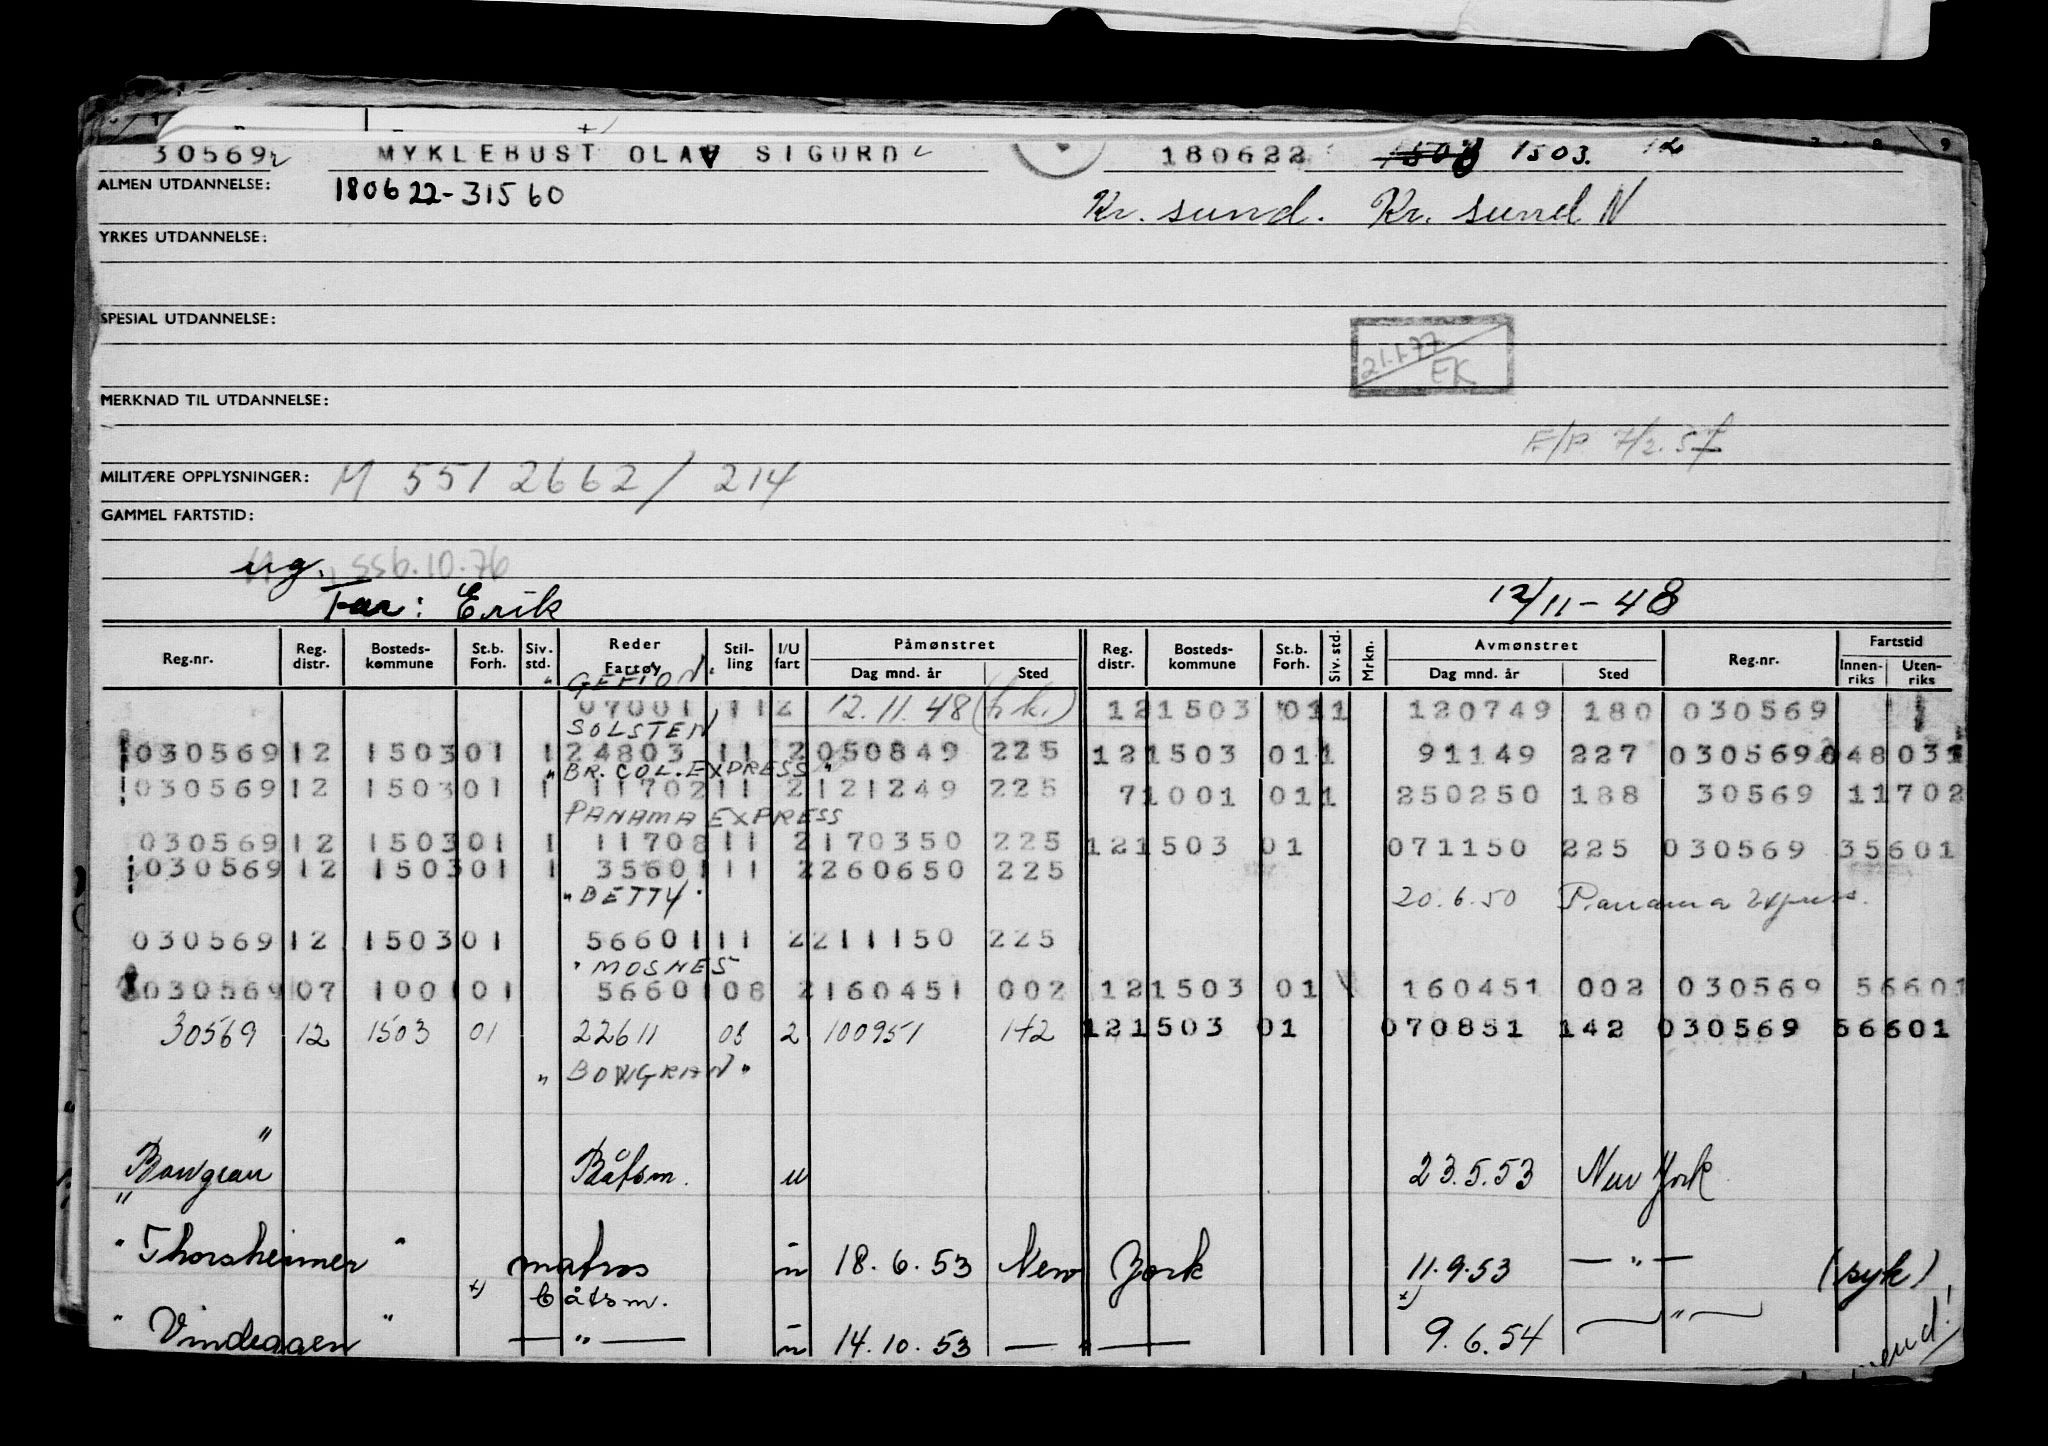 30569 MYKLEBUST OLAV SIGURD 180622 1503. 12
ALMEN UTDANNELSE: 180622-31560 Kr. sund. Kr. sund N
YRKES UTDANNELSE:
SPESIAL UTDANNELSE:
21.1.77 EK
MERKNAD TIL UTDANNELSE:
F/P 7/2.57
MILITÆRE OPPLYSNINGER: M 5512662/214
GAMMEL FARTSTID:
ug. 556.10.76
Far: Erik 12/11-48
Reg.nr. Reg. distr. Bosteds- kommune St.b. Forh. Siv. std. Reder Fartøy Stil- ling I/U fart Påmønstret Dag mnd. år Sted Reg. distr. Bosteds- kommune St.b. Forh. Siv. std. Mrkn. Avmønstret Dag mnd. år Sted Reg.nr. Fartstid Innen- riks Uten- riks
" GEFION "
07001 11 2 12.11.48 (h.k.) 12 1503 01 1 120749 180 030569
SOLSTEN
030569 12 1503 01 1 24803 11 2 050849 225 12 1503 01 1 91149 227 030569 048031
" BR. COL. EXPRESS "
030569 12 1503 01 1 11702 11 2 121249 225 7 1001 01 1 250250 188 30569 11702
PANAMA EXPRESS
030569 12 1503 01 1 11708 11 2 170350 225 12 1503 01 071150 225 030569 35601
030569 12 1503 01 1 35601 11 2 260650 225
" BETTY " 20.6.50 Panama Express.
030569 12 1503 01 56601 11 2 211150 225
" MOSNES
030569 07 1001 01 56601 08 2 160451 002 12 1503 01 160451 002 030569 56601
30569 12 1503 01 22611 08 2 100951 142 12 1503 01 070851 142 030569 56601
" BOWGRAN "
" Bowgran " Båtsm. u 23.5.53 New York
" Thorsheimer " matros u 18.6.53 New York 11.9.53 — " — (syk)
x) båtsm. x)
" Vindeggen " — " — u 14.10.53 — " — 9.6.54 — " —